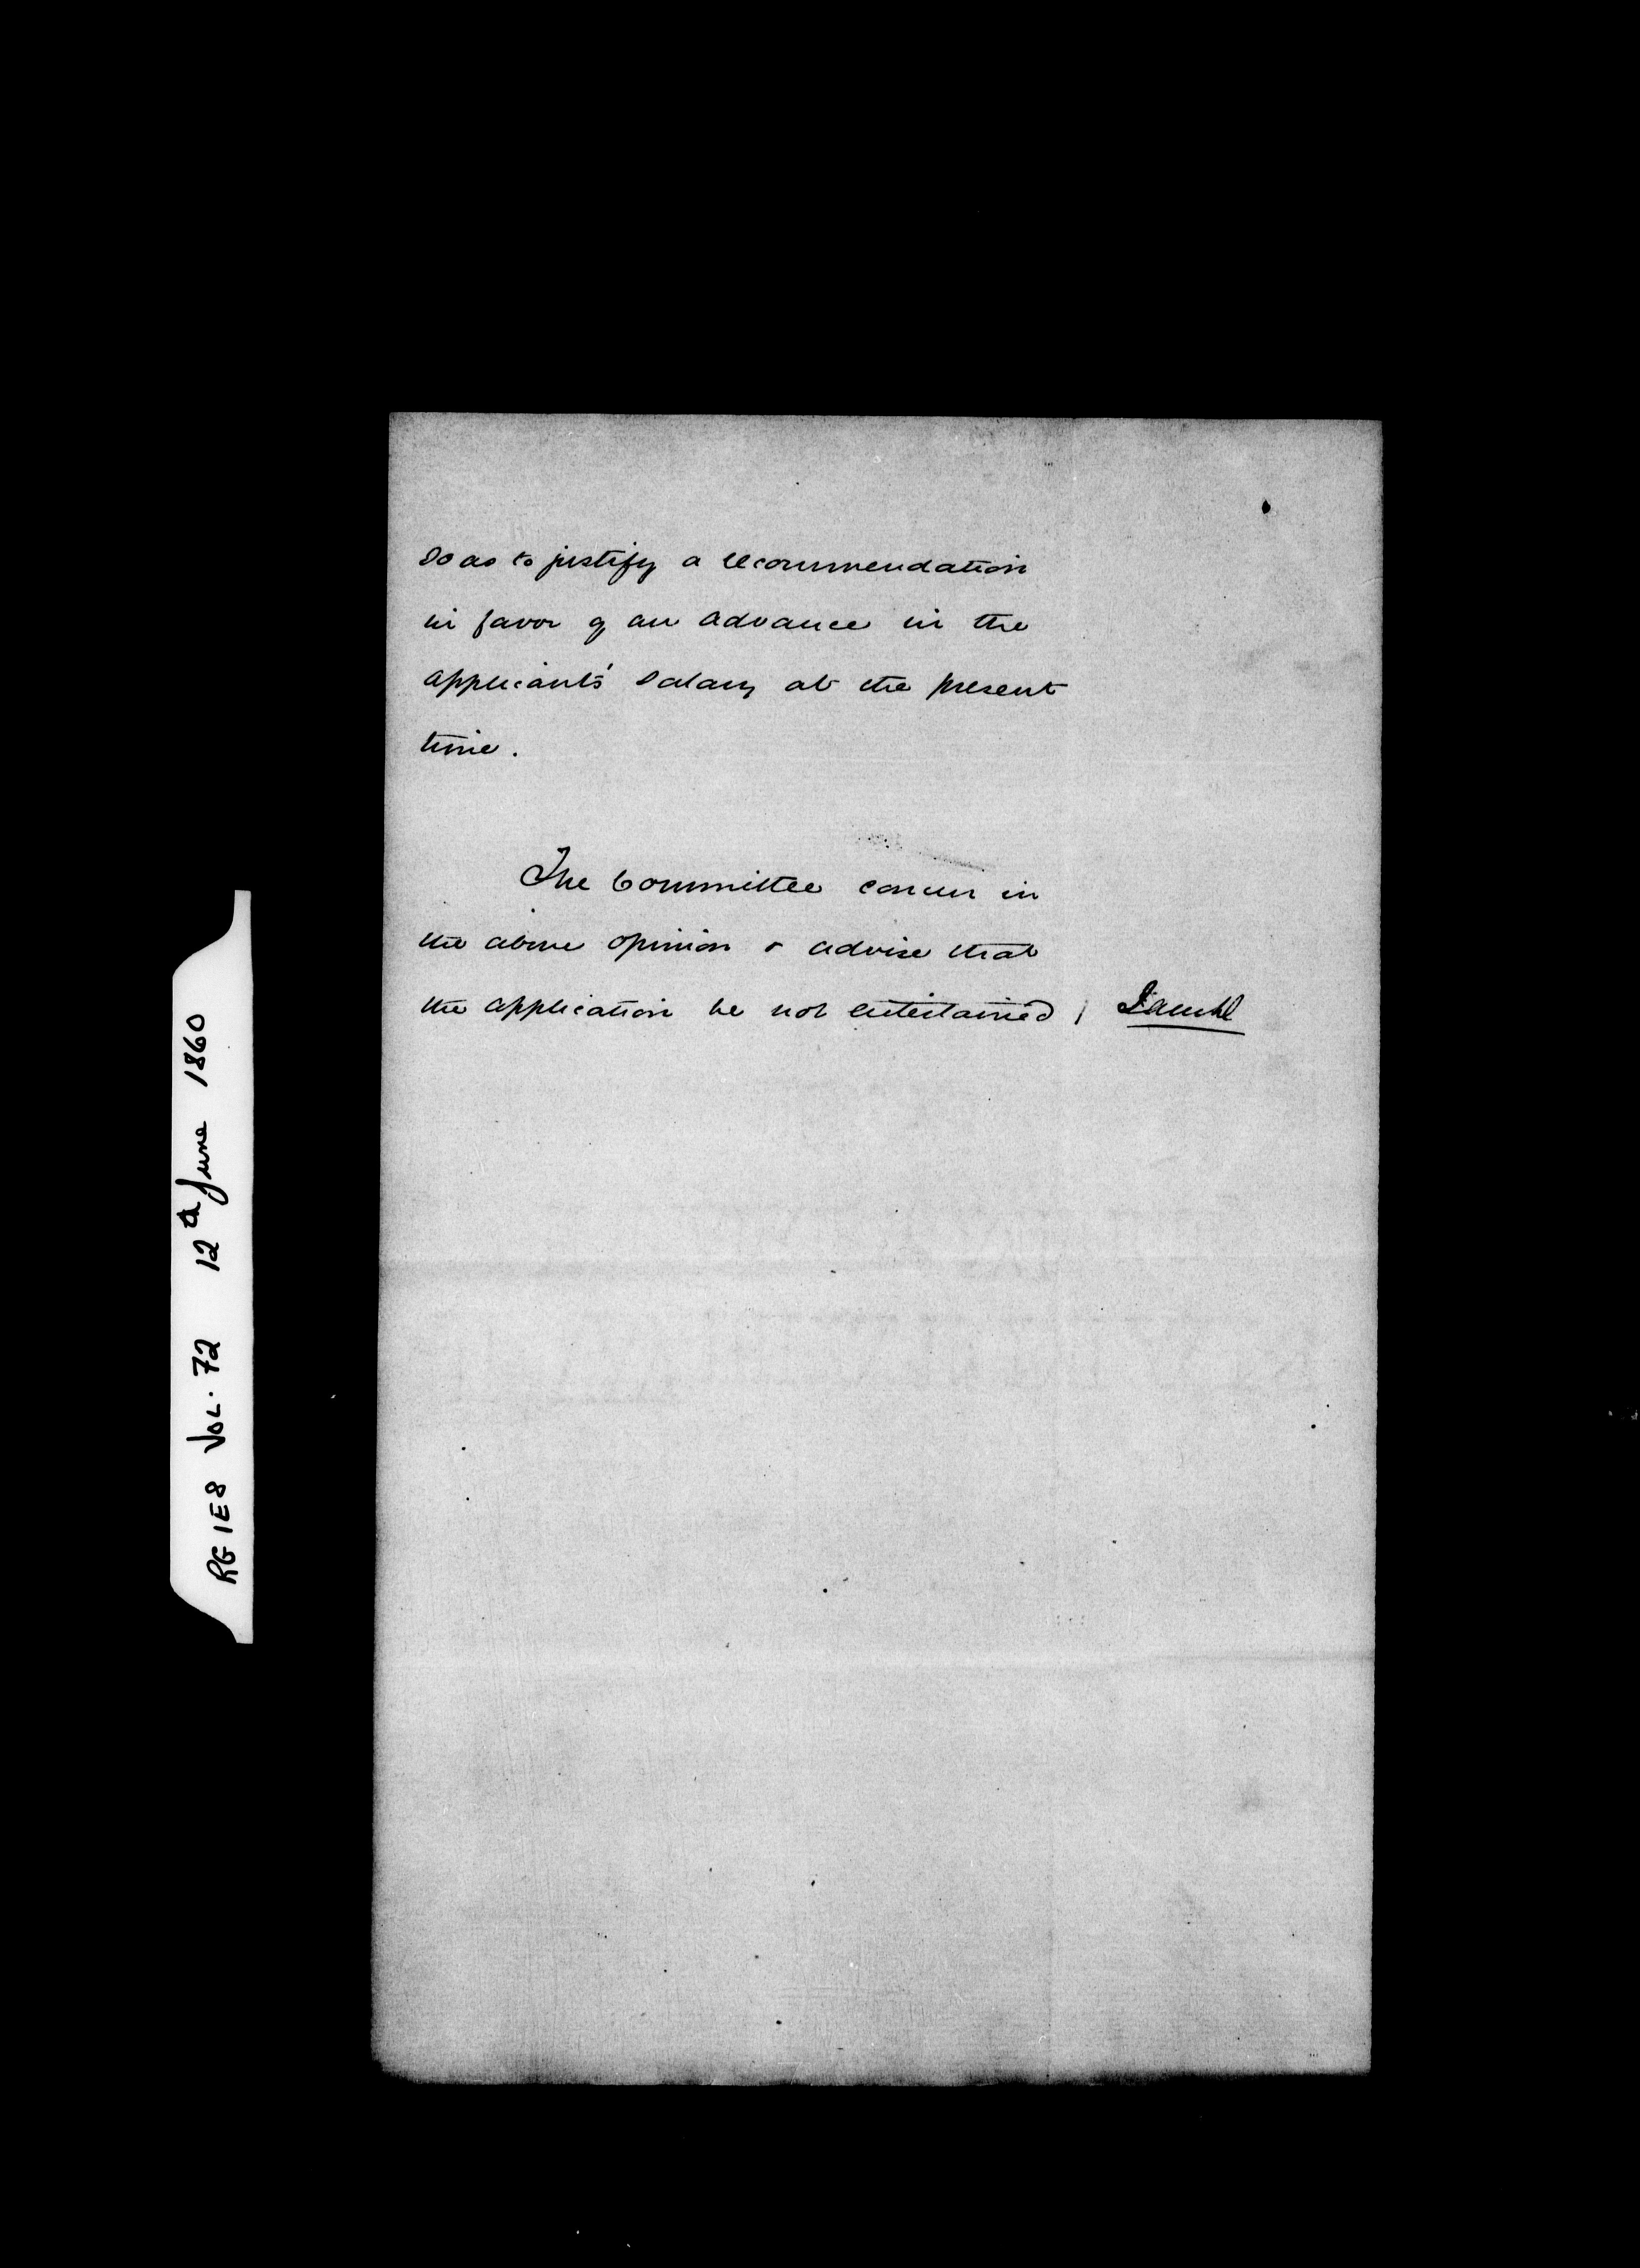 so as to justify a recommendation
in favor of an advance in the
applicants' salary at the present
time.
The Committee concur in
the above opinion & advise that
the application be not entertained,
RG 1E8 VOL. 72 12th June 1860